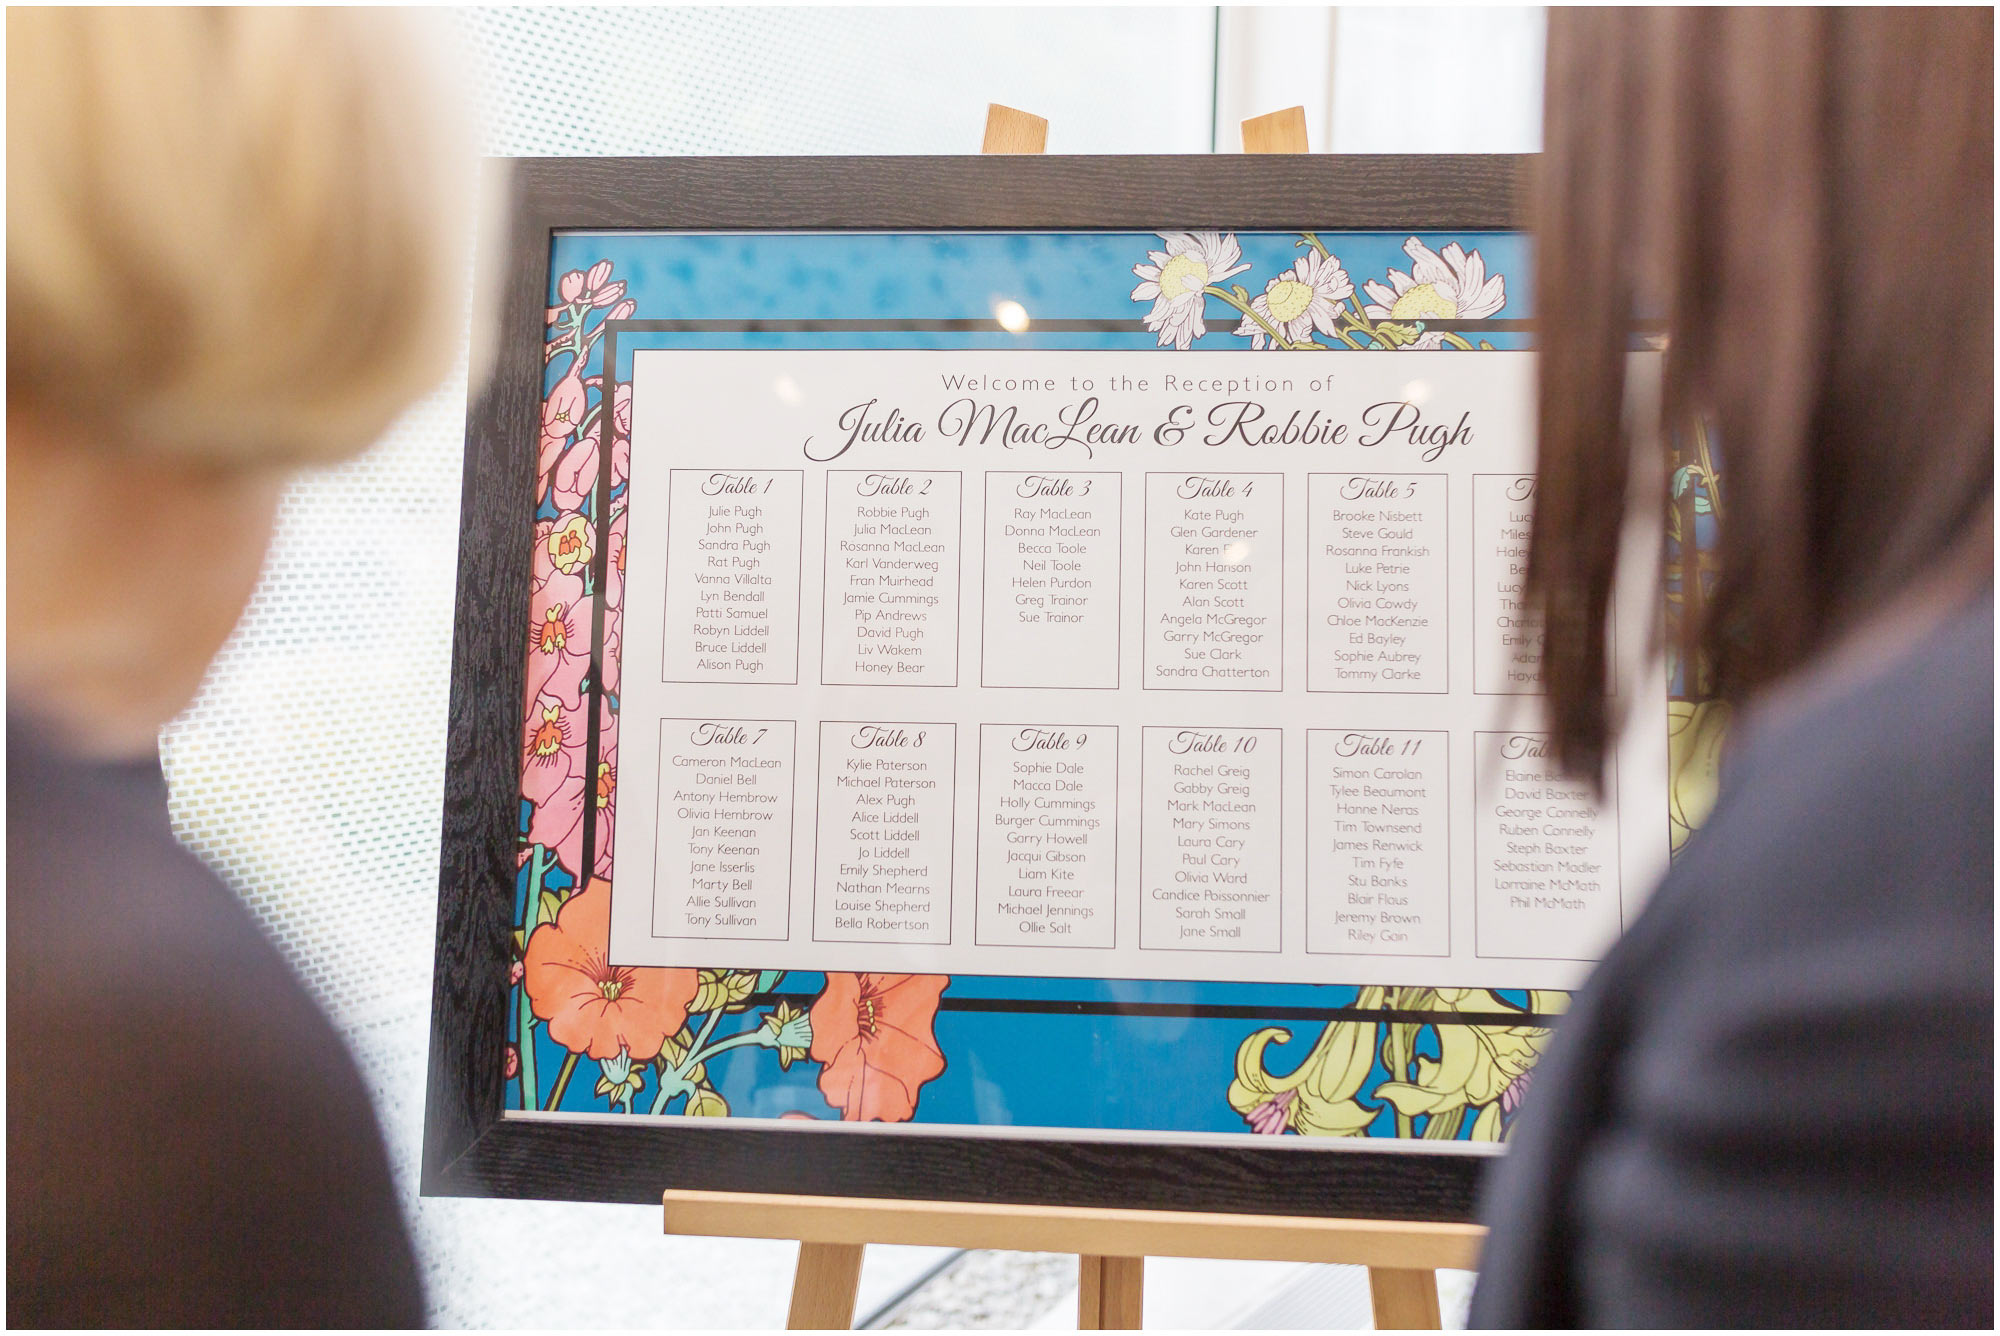 Welcome to the Reception of
Julia MacLean & Robbie Pugh
Table 1
Julie Pugh
John Pugh
Sandra Pugh
Rat Pugh
Vanna Villalta
Lyn Bendall
Patti Samuel
Robyn Liddell
Bruce Liddell
Alison Pugh
Table 2
Robbie Pugh
Julia MacLean
Rosanna MacLean
Karl Vanderweg
Fran Muirhead
Jamie Cummings
Pip Andrews
David Pugh
Liv Wakem
Honey Bear
Table 3
Ray MacLean
Donna MacLean
Becca Toole
Neil Toole
Helen Purdon
Greg Trainor
Sue Trainor
Table 4
Kate Pugh
Glen Gardener
Karen
John Hanson
Karen Scott
Alan Scott
Angela McGregor
Garry McGregor
Sue Clark
Sandra Chatterton
Table 5
Brooke Nisbett
Steve Gould
Rosanna Frankish
Luke Petrie
Nick Lyons
Olivia Cowdy
Chloe MacKenzie
Ed Bayley
Sophie Aubrey
Tommy Clarke
Miles
Emily
Table 7
Cameron MacLean
Daniel Bell
Antony Hembrow
Olivia Hembrow
Jan Keenan
Tony Keenan
Jane Isserlis
Marty Bell
Allie Sullivan
Tony Sullivan
Table 8
Kylie Paterson
Michael Paterson
Alex Pugh
Alice Liddell
Scott Liddell
Jo Liddell
Emily Shepherd
Nathan Mearns
Louise Shepherd
Bella Robertson
Table 9
Sophie Dale
Macca Dale
Holly Cummings
Burger Cummings
Garry Howell
Jacqui Gibson
Liam Kite
Laura Freear
Michael Jennings
Ollie Salt
Table 10
Rachel Greig
Gabby Greig
Mark MacLean
Mary Simons
Laura Cary
Paul Cary
Olivia Ward
Candice Poissonnier
Sarah Small
Jane Small
Table 11
Simon Carolan
Tylee Beaumont
Hanne Neras
Tim Townsend
James Renwick
Tim Fyfe
Stu Banks
Blair Flaus
Jeremy Brown
Riley Gain
Elaine
David Baxter
George Connelly
Ruben Connelly
Steph Baxter
Sebastian Madler
Lorraine McMath
Phil McMath